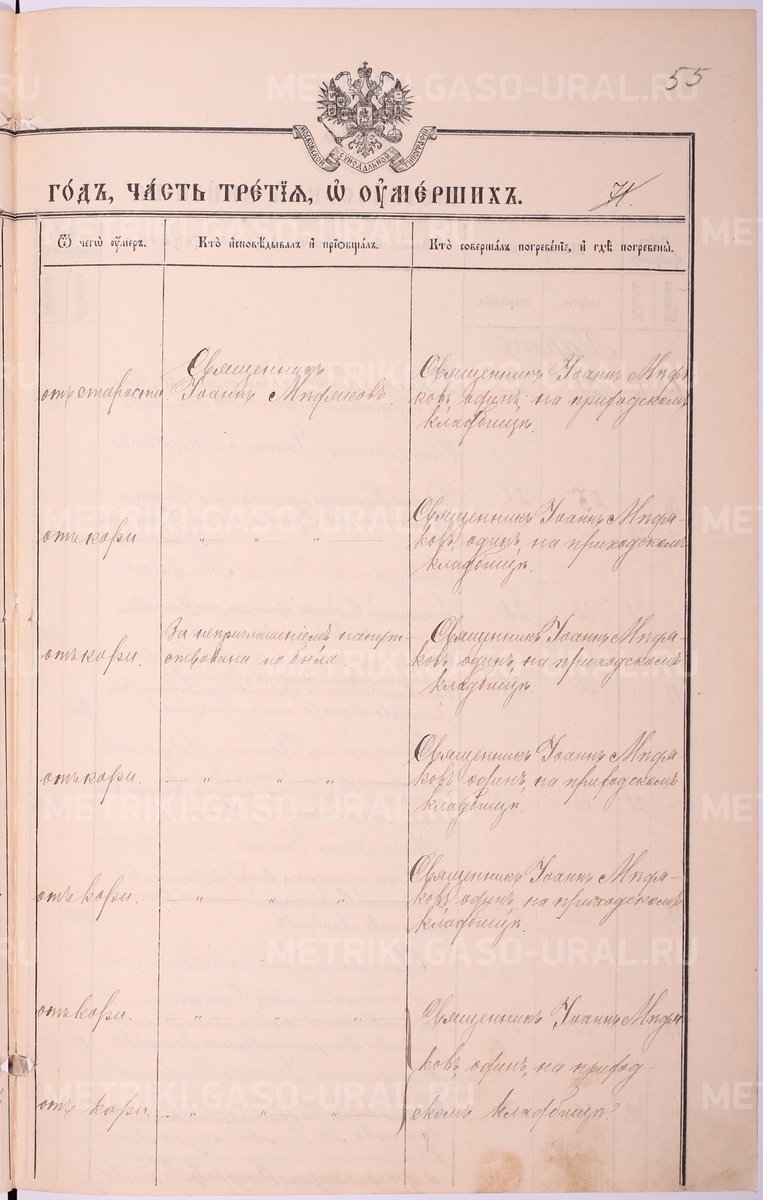 55
МОСКОВСКОЙ СѴНОДАЛЬНОЙ ТИПОГРАФІИ
ГОДЪ, ЧАСТЬ ТРЕТІЯ, Ѿ ОУМЕРШИХЪ.
71.
Ѿ чегѡ оумеръ.
Кто исповѣдывалъ и пріобщалъ.
Кто совершалъ погребеніе, и гдѣ погребены.
отъ старости
Священникъ
Іоаннъ Мифлаковъ.
Священникъ Іоаннъ Мифла
ковъ одинъ, на приходскомъ
кладбищѣ.
отъ кори
— " — " — " —
Священникъ Іоаннъ Мифла-
ковъ, одинъ, на приходскомъ
кладбищѣ.
отъ кори.
За неприглашеніемъ напут-
ствована не была.
Священникъ Іоаннъ Мифла-
ковъ одинъ, на приходскомъ
кладбищѣ.
отъ кори.
— " — " — " —
Священникъ Іоаннъ Мифла
ковъ одинъ, на приходскомъ
кладбищѣ.
отъ кори.
— " — " — " —
Священникъ Іоаннъ Мифла-
ковъ одинъ, на приходскомъ
кладбищѣ.
отъ кори.
— " — " — " —
отъ кори.
— " — " — " —
Священникъ Іоаннъ Мифла
ковъ одинъ, на приход-
скомъ кладбищѣ.
METRIKI.GASO-URAL.RU